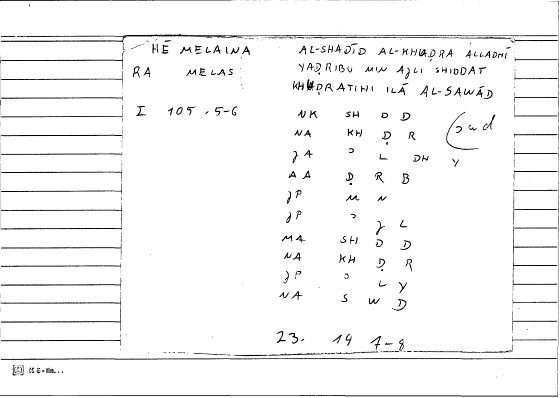 HĒ MELAINA
AL-SHADĪD AL-KHUḌRA ALLADHĪ
RA MELAS
YAḌRIBU MIN AJLI SHIDDAT
KHUḌRATIHI ILĀ AL-SAWĀD
I 105.5-6
NK SH D D
NA KH Ḍ R
ʒA ɔ L DH Y
AA Ḍ R B
ʒP M N
ʒP ɔ ʒ L
MA SH D D
NA KH Ḍ R
ʒP ɔ L Y
NA S W D
23. 19 7-8